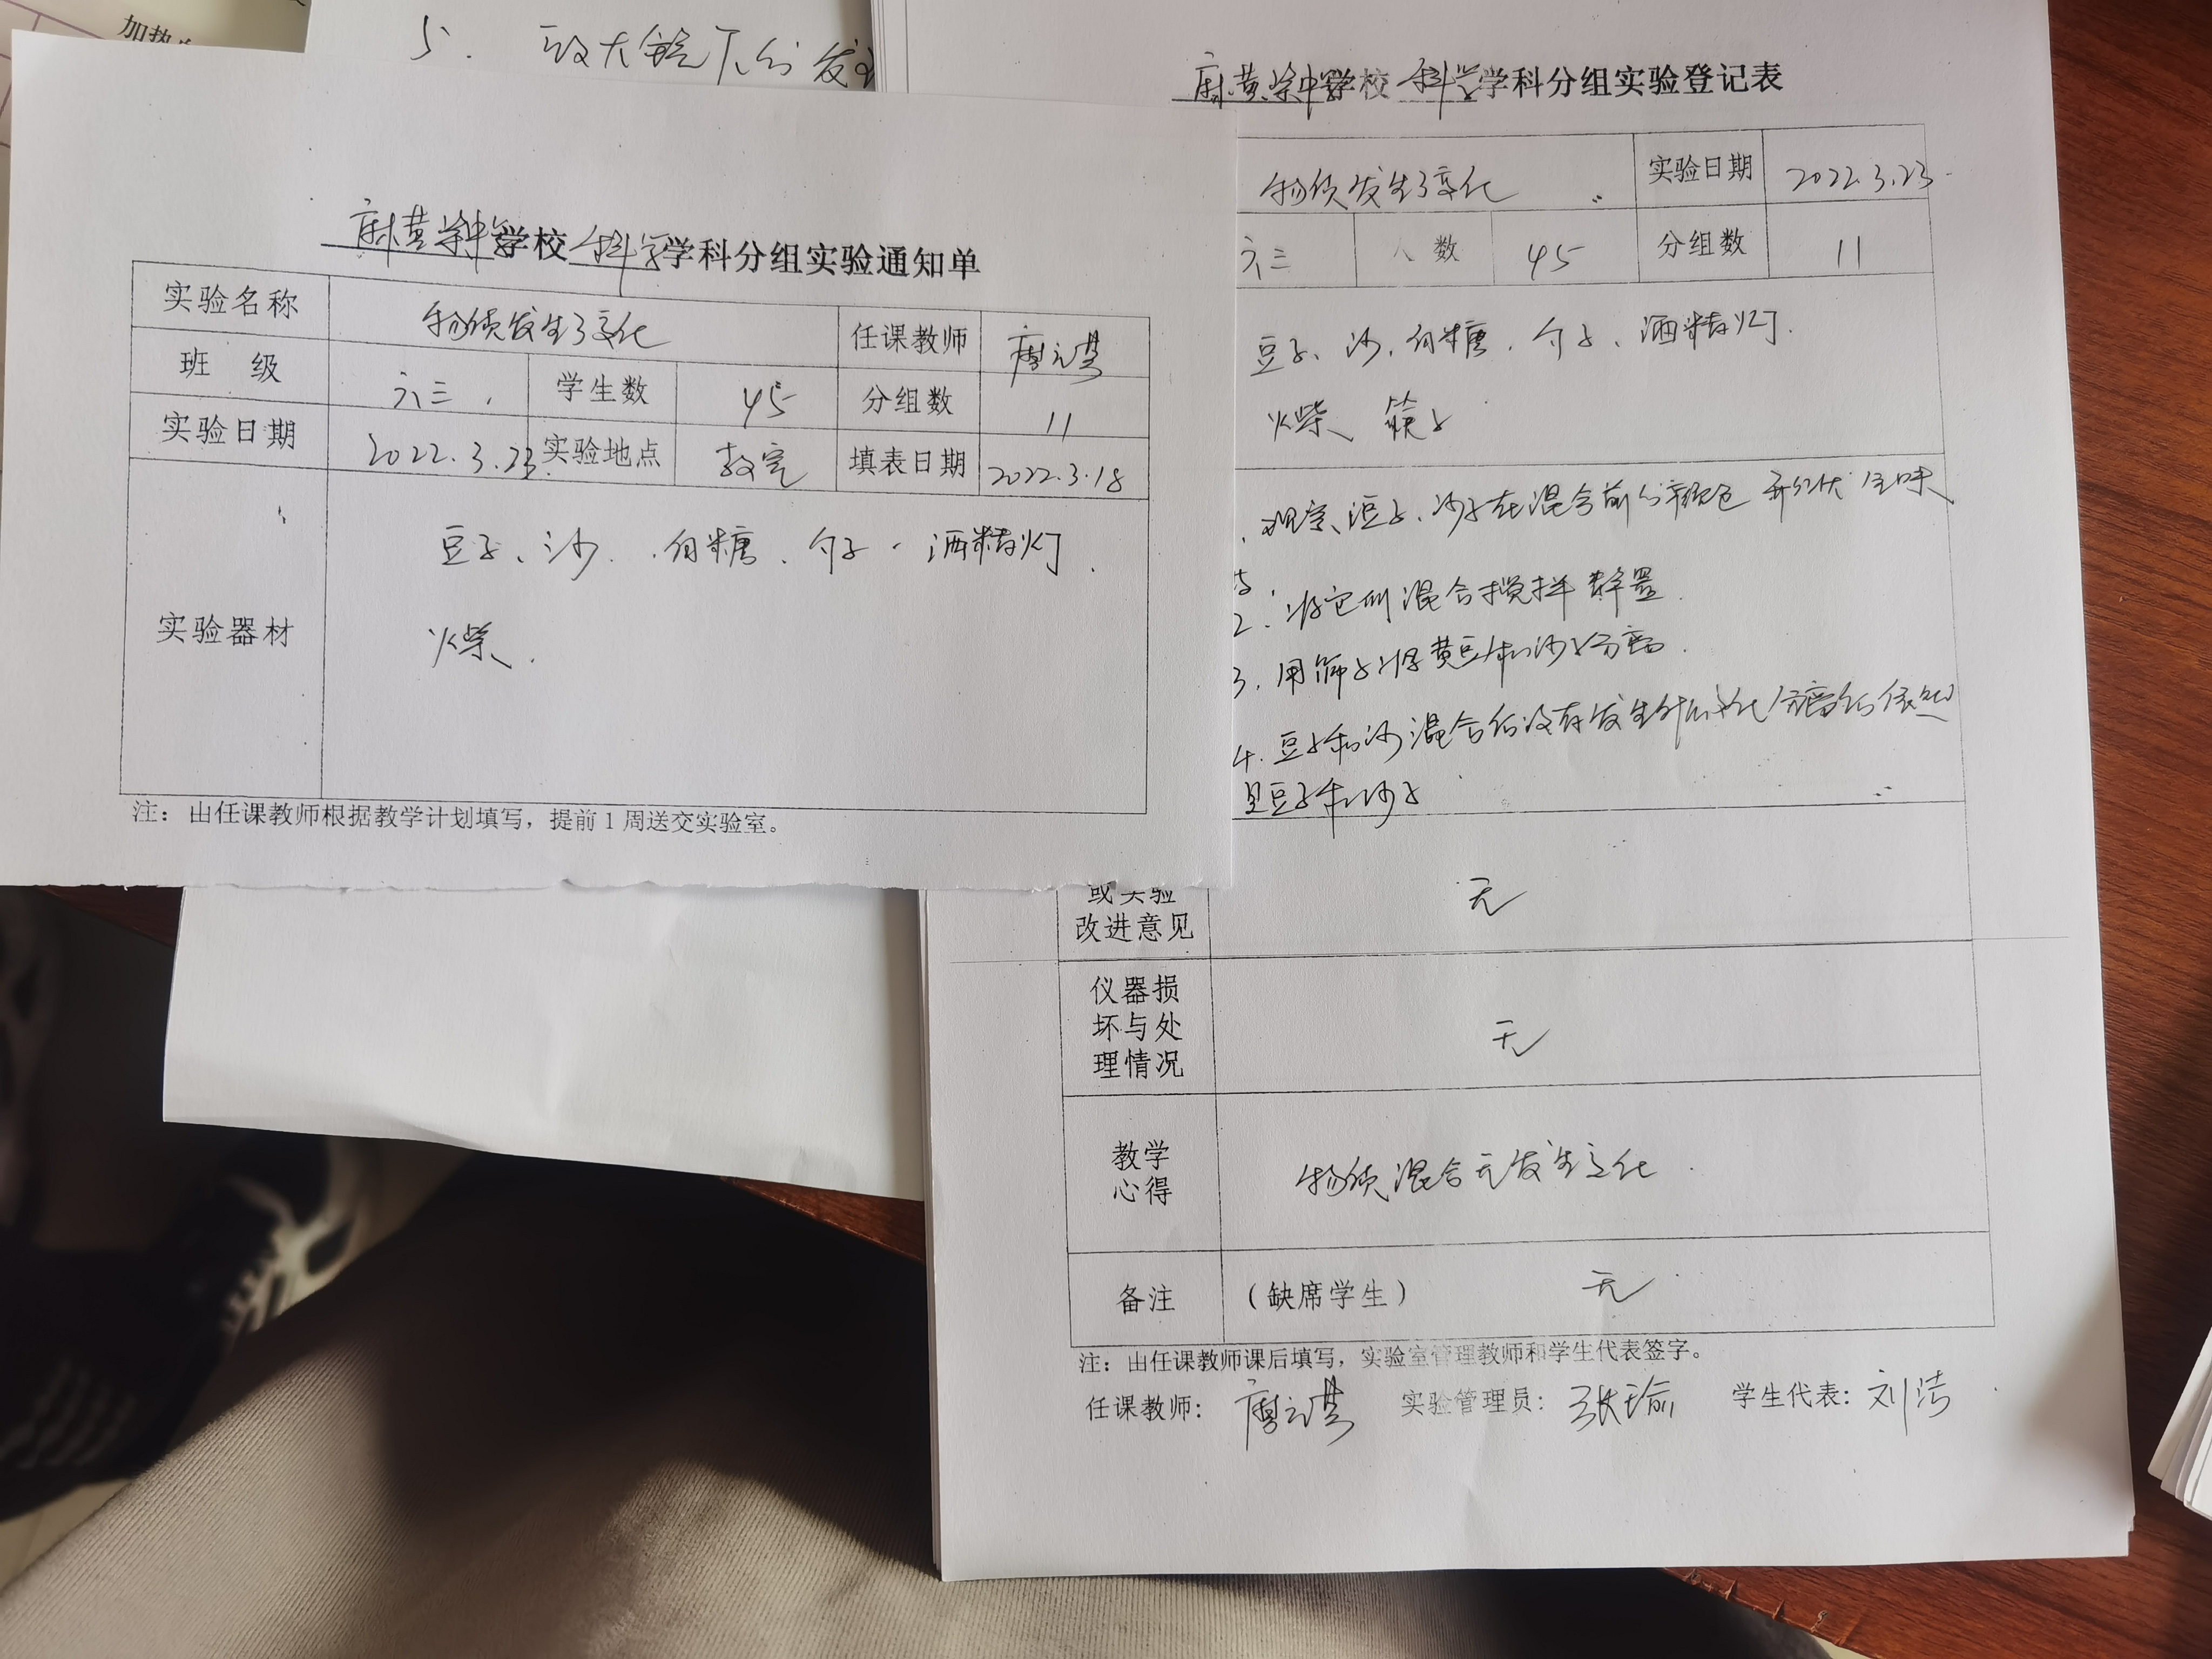 加热
5. 放大镜下的发
麻黄涂中学校 科学学科分组实验通知单
实验名称 物质发生了变化 任课教师
班 级 六三 学生数 45 分组数 11
实验日期 2022.3.23 实验地点 教室 填表日期 2022.3.18
实验器材 豆子、沙、白糖、勺子、酒精灯.
火柴.
注：由任课教师根据教学计划填写，提前1周送交实验室。
麻黄涂中学校 科学学科分组实验登记表
物质发生了变化 实验日期 2022.3.23
六三 人数 45 分组数 11
豆子、沙、白糖、勺子、酒精灯.
火柴、筷子
观察豆子、沙子在混合前的颜色 形状 气味
2. 将它们混合搅拌静置.
3. 用筛子将黄豆和沙子分离.
4. 豆子和沙混合后没有发生什么变化,分离后依然
是豆子和沙子
或实验
改进意见 无
仪器损
坏与处
理情况 无
教学
心得 物质混合无发生变化
备注 （缺席学生） 无
注：由任课教师课后填写，实验室管理教师和学生代表签字。
任课教师： 实验管理员：张瑜 学生代表：刘洁